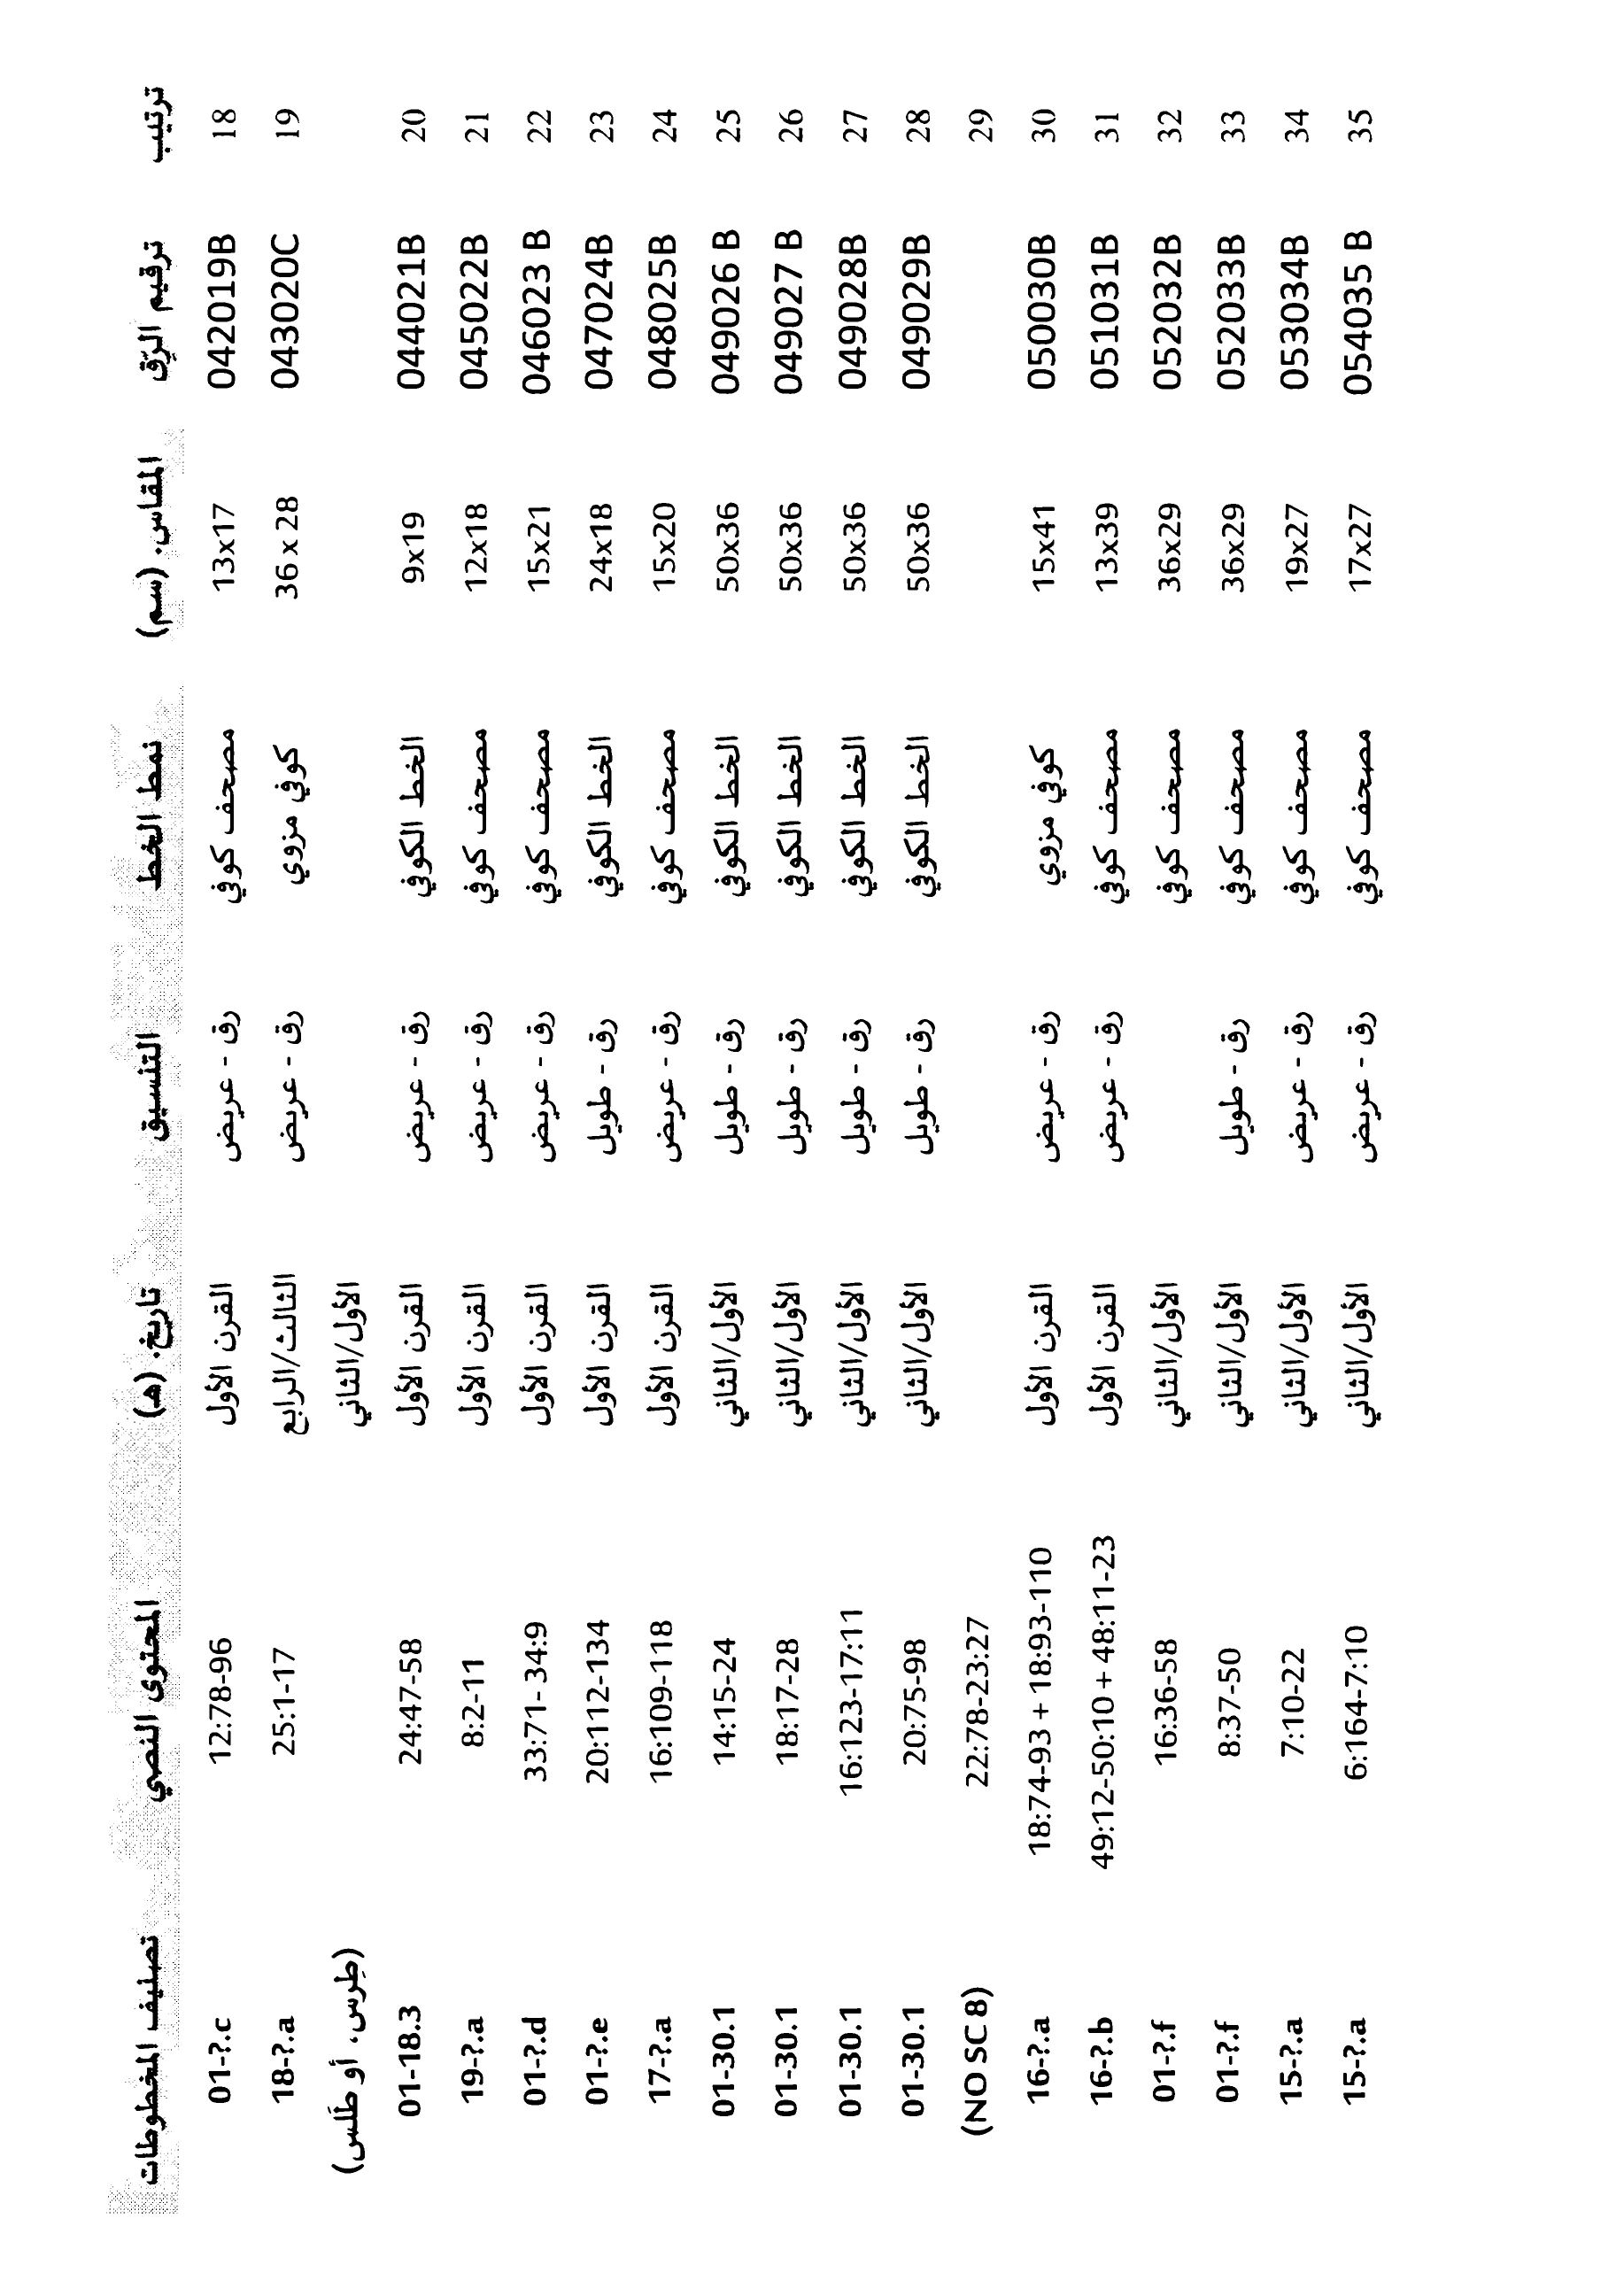 ترتيب ترقيم الرّق المقاس. (سم) نمط الخط التنسيق تاريخ. (هـ) المحتوى النصي تصنيف المخطوطات
18 042019B 13x17 مصحف كوفي رق - عريض القرن الأول 12:78-96 01-?.c
19 043020C 36 x 28 كوفي مزوي رق - عريض الثالث/الرابع 25:1-17 18-?.a
الأول/الثاني (طِرس، أو طَلس)
20 044021B 9x19 الخط الكوفي رق - عريض القرن الأول 24:47-58 01-18.3
21 045022B 12x18 مصحف كوفي رق - عريض القرن الأول 8:2-11 19-?.a
22 046023 B 15x21 مصحف كوفي رق - عريض القرن الأول 33:71- 34:9 01-?.d
23 047024B 24x18 الخط الكوفي رق - طويل القرن الأول 20:112-134 01-?.e
24 048025B 15x20 مصحف كوفي رق - عريض القرن الأول 16:109-118 17-?.a
25 049026 B 50x36 الخط الكوفي رق - طويل الأول/الثاني 14:15-24 01-30.1
26 049027 B 50x36 الخط الكوفي رق - طويل الأول/الثاني 18:17-28 01-30.1
27 049028B 50x36 الخط الكوفي رق - طويل الأول/الثاني 16:123-17:11 01-30.1
28 049029B 50x36 الخط الكوفي رق - طويل الأول/الثاني 20:75-98 01-30.1
29 22:78-23:27 (NO SC 8)
30 050030B 15x41 كوفي مزوي رق - عريض القرن الأول 18:74-93 + 18:93-110 16-?.a
31 051031B 13x39 مصحف كوفي رق - عريض القرن الأول 49:12-50:10 + 48:11-23 16-?.b
32 052032B 36x29 مصحف كوفي الأول/الثاني 16:36-58 01-?.f
33 052033B 36x29 مصحف كوفي رق - طويل الأول/الثاني 8:37-50 01-?.f
34 053034B 19x27 مصحف كوفي رق - عريض الأول/الثاني 7:10-22 15-?.a
35 054035 B 17x27 مصحف كوفي رق - عريض الأول/الثاني 6:164-7:10 15-?.a